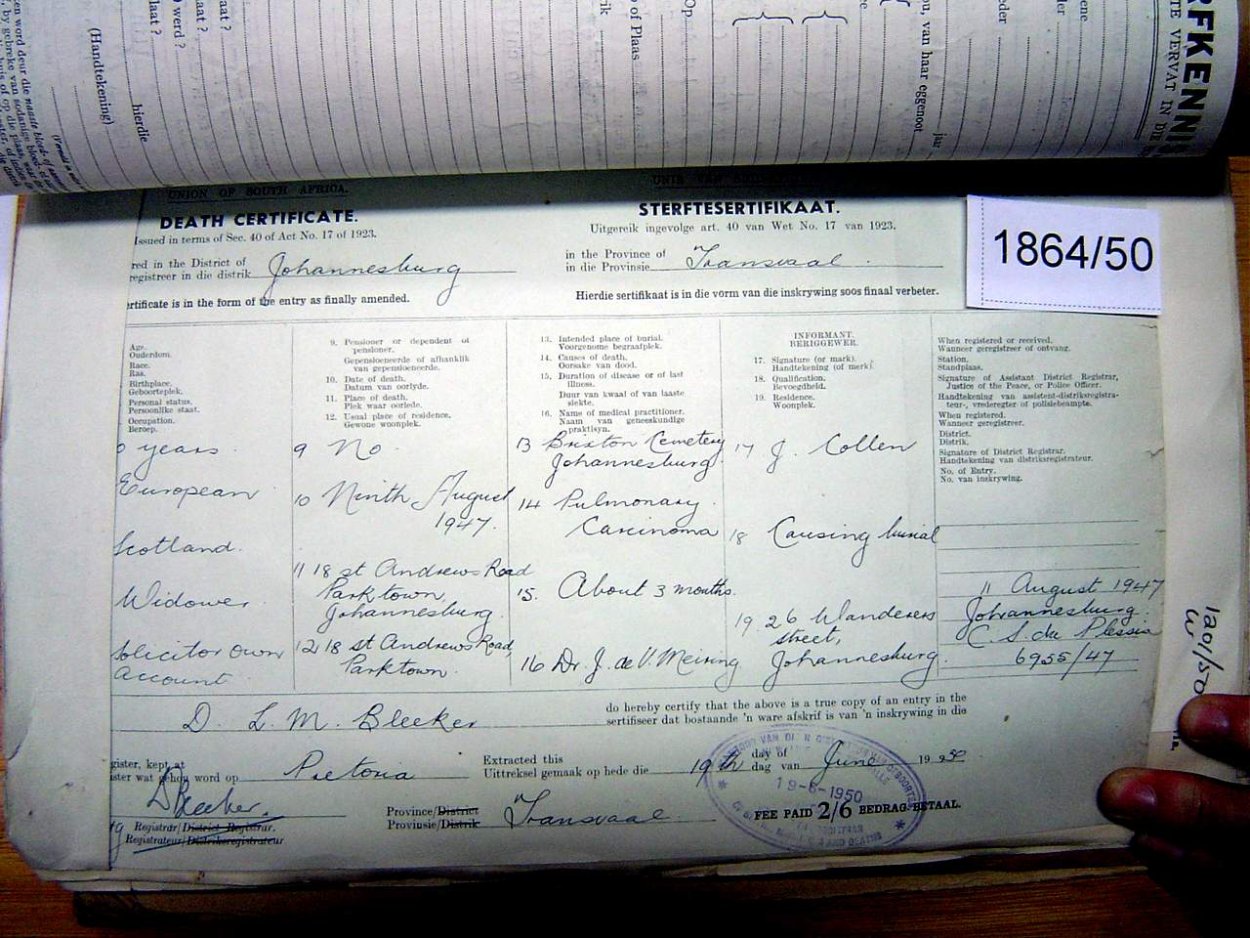 RFKENNI
TE VERVAT IN DIE
(Handtekening)
hierdie
of Plaas
Op
van haar eggenoot
jaar
UNION OF SOUTH AFRICA.
DEATH CERTIFICATE.
STERFTESERTIFIKAAT.
Issued in terms of Sec. 40 of Act No. 17 of 1923.
Uitgereik ingevolge art. 40 van Wet No. 17 van 1923.
1864/50
red in the District of
registreer in die distrik Johannesburg
in the Province of
in die Provinsie Transvaal.
ertificate is in the form of the entry as finally amended.
Hierdie sertifikaat is in die vorm van die inskrywing soos finaal verbeter.
Age.
Ouderdom.
Race.
Ras.
Birthplace.
Geboorteplek.
Personal status.
Persoonlike staat.
Occupation.
Beroep.
9. Pensioner or dependent of
pensioner.
Gepensioeneerde of afhanklik
van gepensioeneerde.
10. Date of death.
Datum van oorlyde.
11. Place of death.
Plek waar oorlede.
12. Usual place of residence.
Gewone woonplek.
13. Intended place of burial.
Voorgenome begraafplek.
14. Causes of death.
Oorsake van dood.
15. Duration of disease or of last
illness.
Duur van kwaal of van laaste
siekte.
16. Name of medical practitioner.
Naam van geneeskundige
praktisyn.
INFORMANT.
BERIGGEWER.
17. Signature (or mark).
Handtekening (of merk).
18. Qualification.
Bevoegdheid.
19. Residence.
Woonplek.
When registered or received.
Wanneer geregistreer of ontvang.
Station.
Standplaas.
Signature of Assistant District Registrar,
Justice of the Peace, or Police Officer.
Handtekening van assistent-distriksregistra-
teur-, vrederegter of polisiebeampte.
When registered.
Wanneer geregistreer.
District.
Distrik.
Signature of District Registrar.
Handtekening van distriksregistrateur.
No. of Entry.
No. van inskrywing.
years
European
Scotland.
Widower
Solicitor own
account.
9 No.
10 Ninth August
1947.
11 18 st Andrews Road
Parktown,
Johannesburg.
12 18 st Andrews Road,
Parktown.
13 Brixton Cemetery
Johannesburg.
14 Pulmonary
Carcinoma
15. About 3 months.
16 Dr. J. de V. Meiring
17 J. Collen
18 Causing burial
19. 26 Wanderers
street,
Johannesburg.
11 August 1947
Johannesburg.
C. S. du Plessis
6955/47
1201/50
D. L. M. Bleeker
do hereby certify that the above is a true copy of an entry in the
sertifiseer dat bostaande 'n ware afskrif is van 'n inskrywing in die
gister, kept at
ster wat gehou word op Pretoria
Extracted this
Uittreksel gemaak op hede die 19th
day of
dag van June 1950
19-6-1950
DBleeker.
Registrar/District Registrar.
Registrateur/Distriksregistrateur
Province/District
Provinsie/Distrik Transvaal
FEE PAID 2/6 BEDRAG BETAAL.